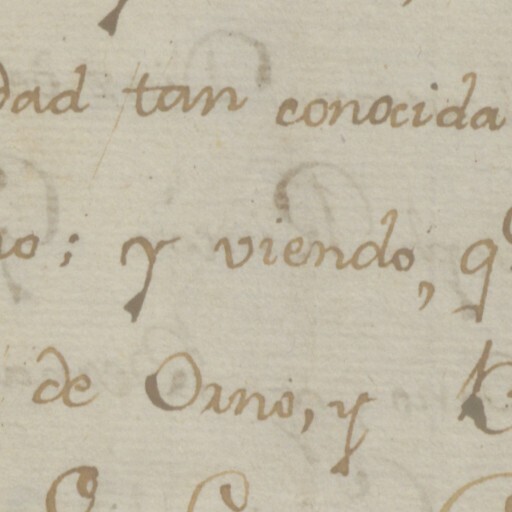 dad tan conocida
; y viendo, q
de Orno, y